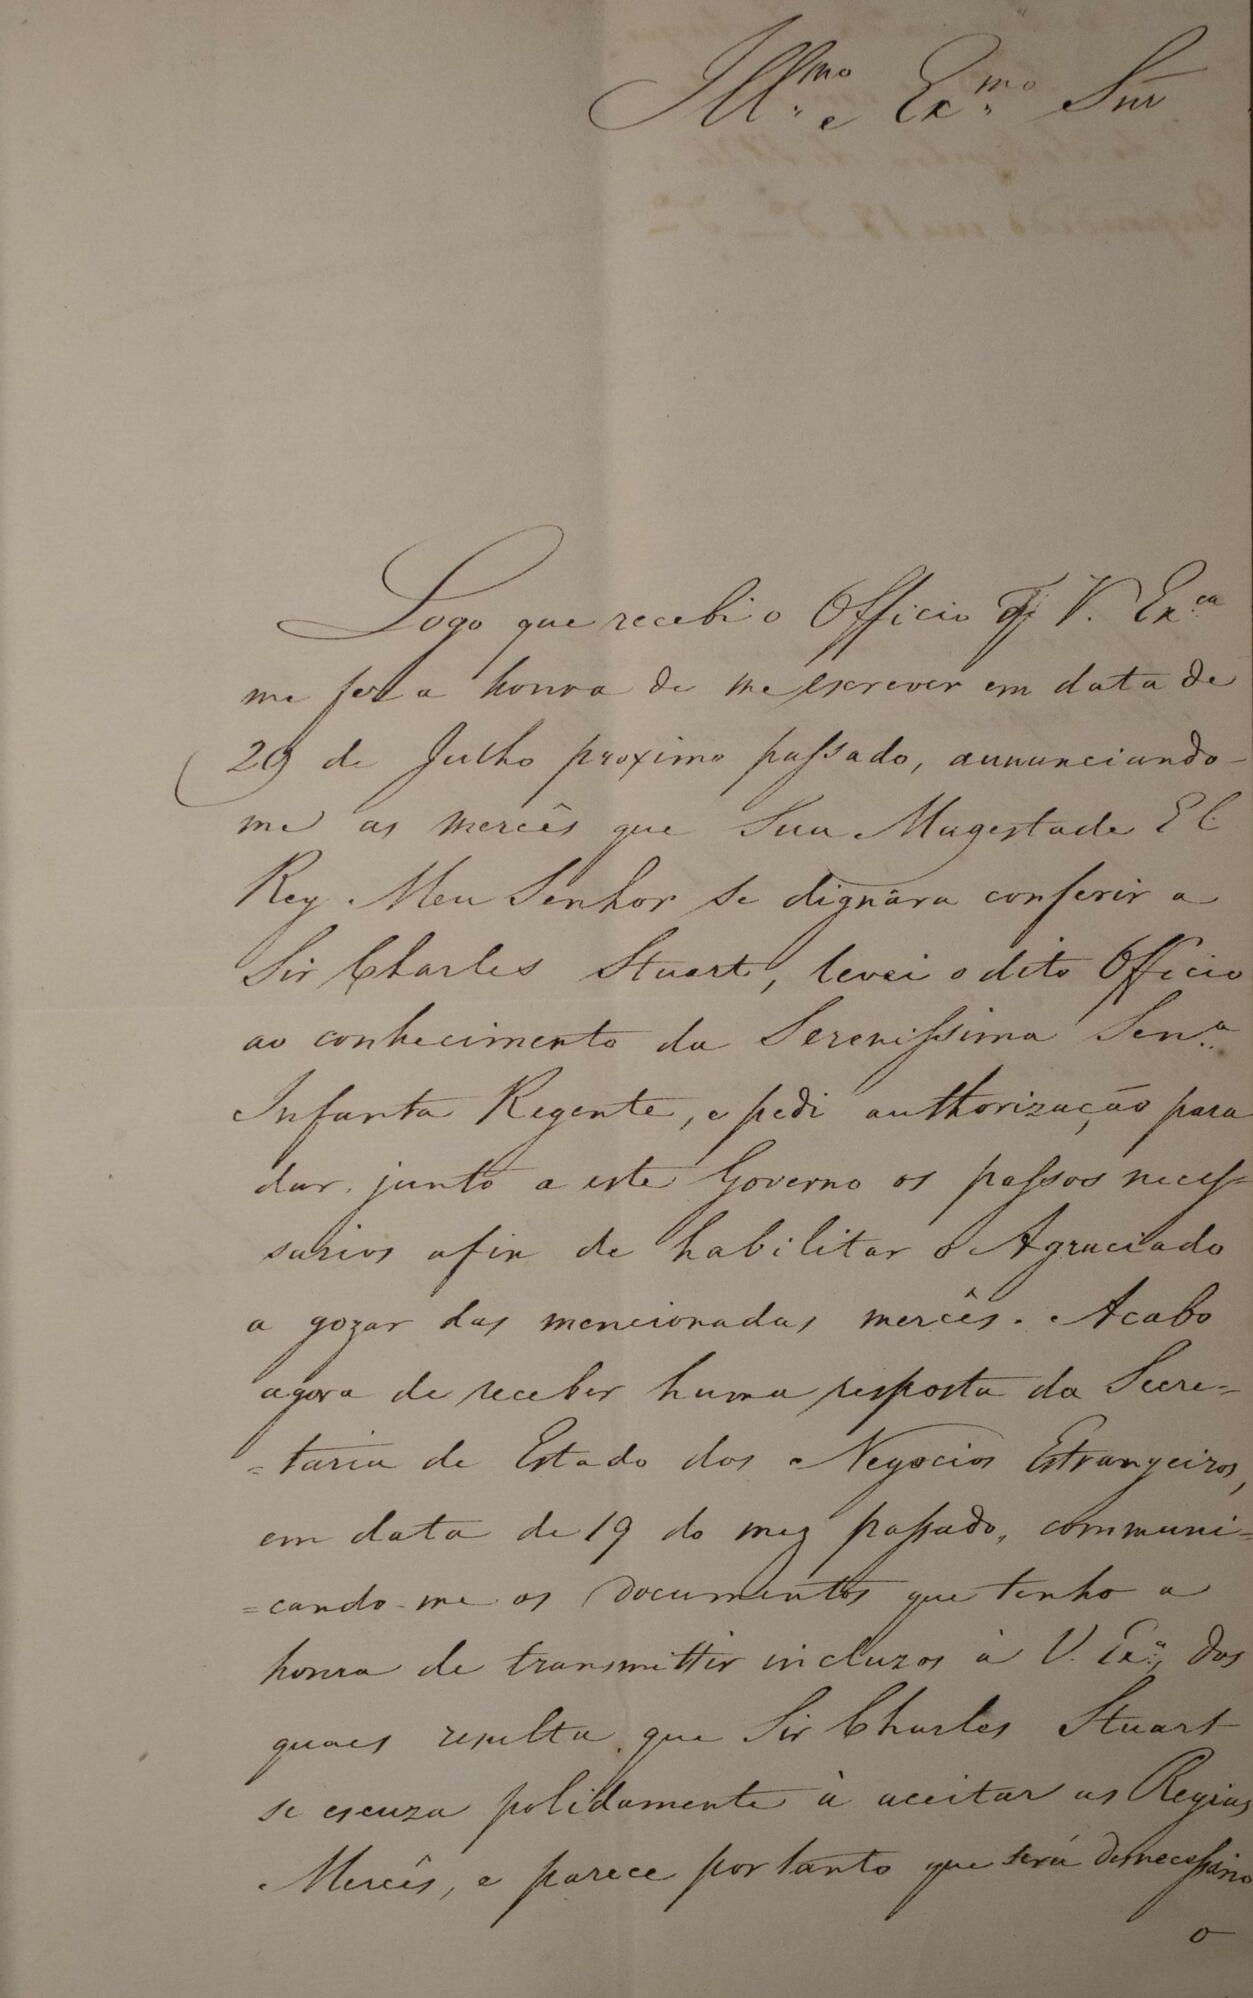 Ill.mo e Ex.mo Snr
Logo que recebi o Officio q V. Ex.ca
me fez a honra de me escrever em data de
29 de Julho proximo passado, annunciando-
me as mercês que Sua Magestade El
Rey Meu Senhor se dignára conferir a
Sir Charles Stuart, levei o dito Officio
ao conhecimento da Serenissima Sen.a
Infanta Regente, e pedi authorização para
dar junto a este Governo os passos neces=
sarios afin de habilitar o Agraciado
a gozar das mencionadas mercês. Acabo
agora de receber huma resposta da Secre=
=taria de Estado dos Negocios Estrangeiros,
em data de 19 do mez passado, communi=
=cando-me os documentos que tenho a
honra de transmittir incluzos à V. Ex.a, dos
quaes resulta que Sir Charles Stuart
se escuza polidamente à aceitar as Regias
Mercês, e parece por tanto que será desnecessario
o